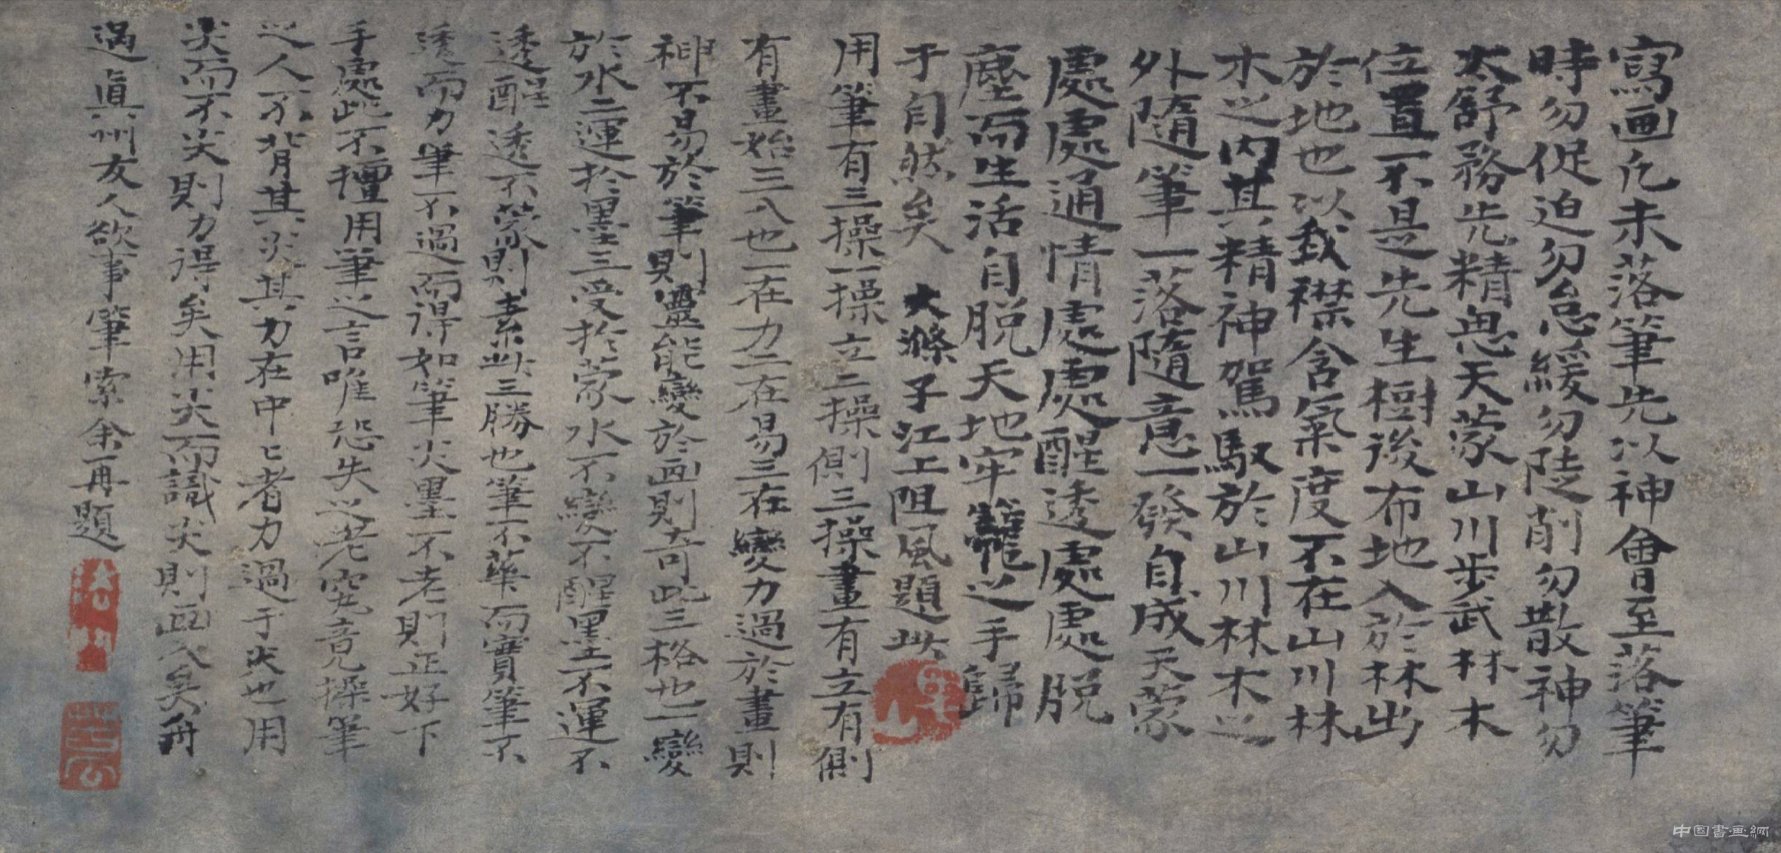 寫画凡未落筆先以神會至落筆
時勿促迫勿怠緩勿陡削勿散神勿
太舒務先精思天蒙山川步武林木
位置不是先生樹後布地入於林出
於地也以我襟含氣度不在山川林
木之內其精神駕馭於山川林木之
外隨筆一落隨意一發自成天蒙
處處通情處處醒透處處脫
塵而生活自脫天地牢籠之手歸
于自然矣 大滌子江上阻風題此
用筆有三操一操立二操側三操畫有立有側
有畫始三入也一在力二在易三在變力過於畫則
神不易於筆則靈能變於画則奇此三格也一變
於水二運於墨三受於蒙水不變不醒墨不運不
透醒透不蒙則素此三勝也筆不華而實筆不
透而力筆不過而得如筆尖墨不老則正好下
手處此不擅用筆之言唯恐失之老究竟操筆
之人不背其尖其力在中中者力過于尖也用
尖而不尖則力得矣用尖而識尖則画入矣舟
過真州友人欲事筆索余再題
中国書画網